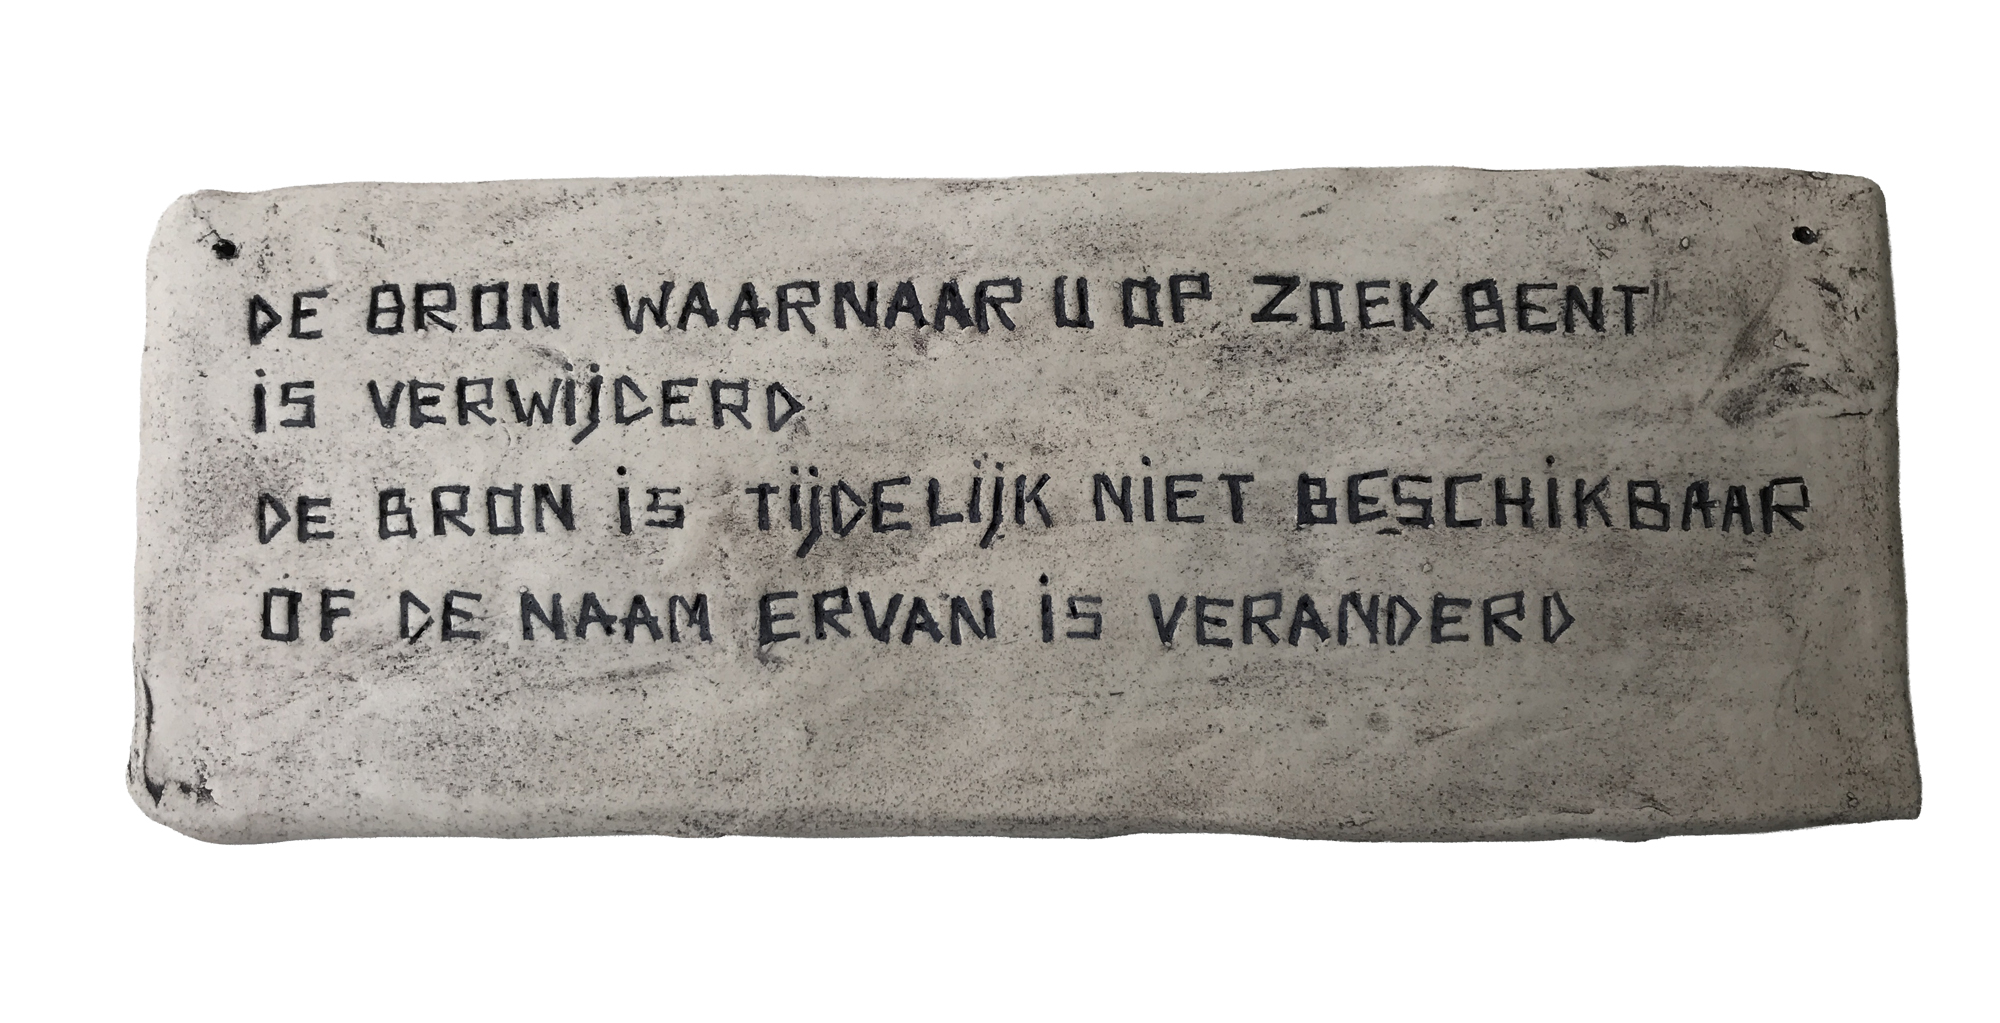 DE BRON WAARNAAR U OP ZOEK BENT
iS VERWijDERD
DE BRON iS TijDELijK NiET BESCHiKBAAR
OF DE NAAM ERVAN iS VERANDERD